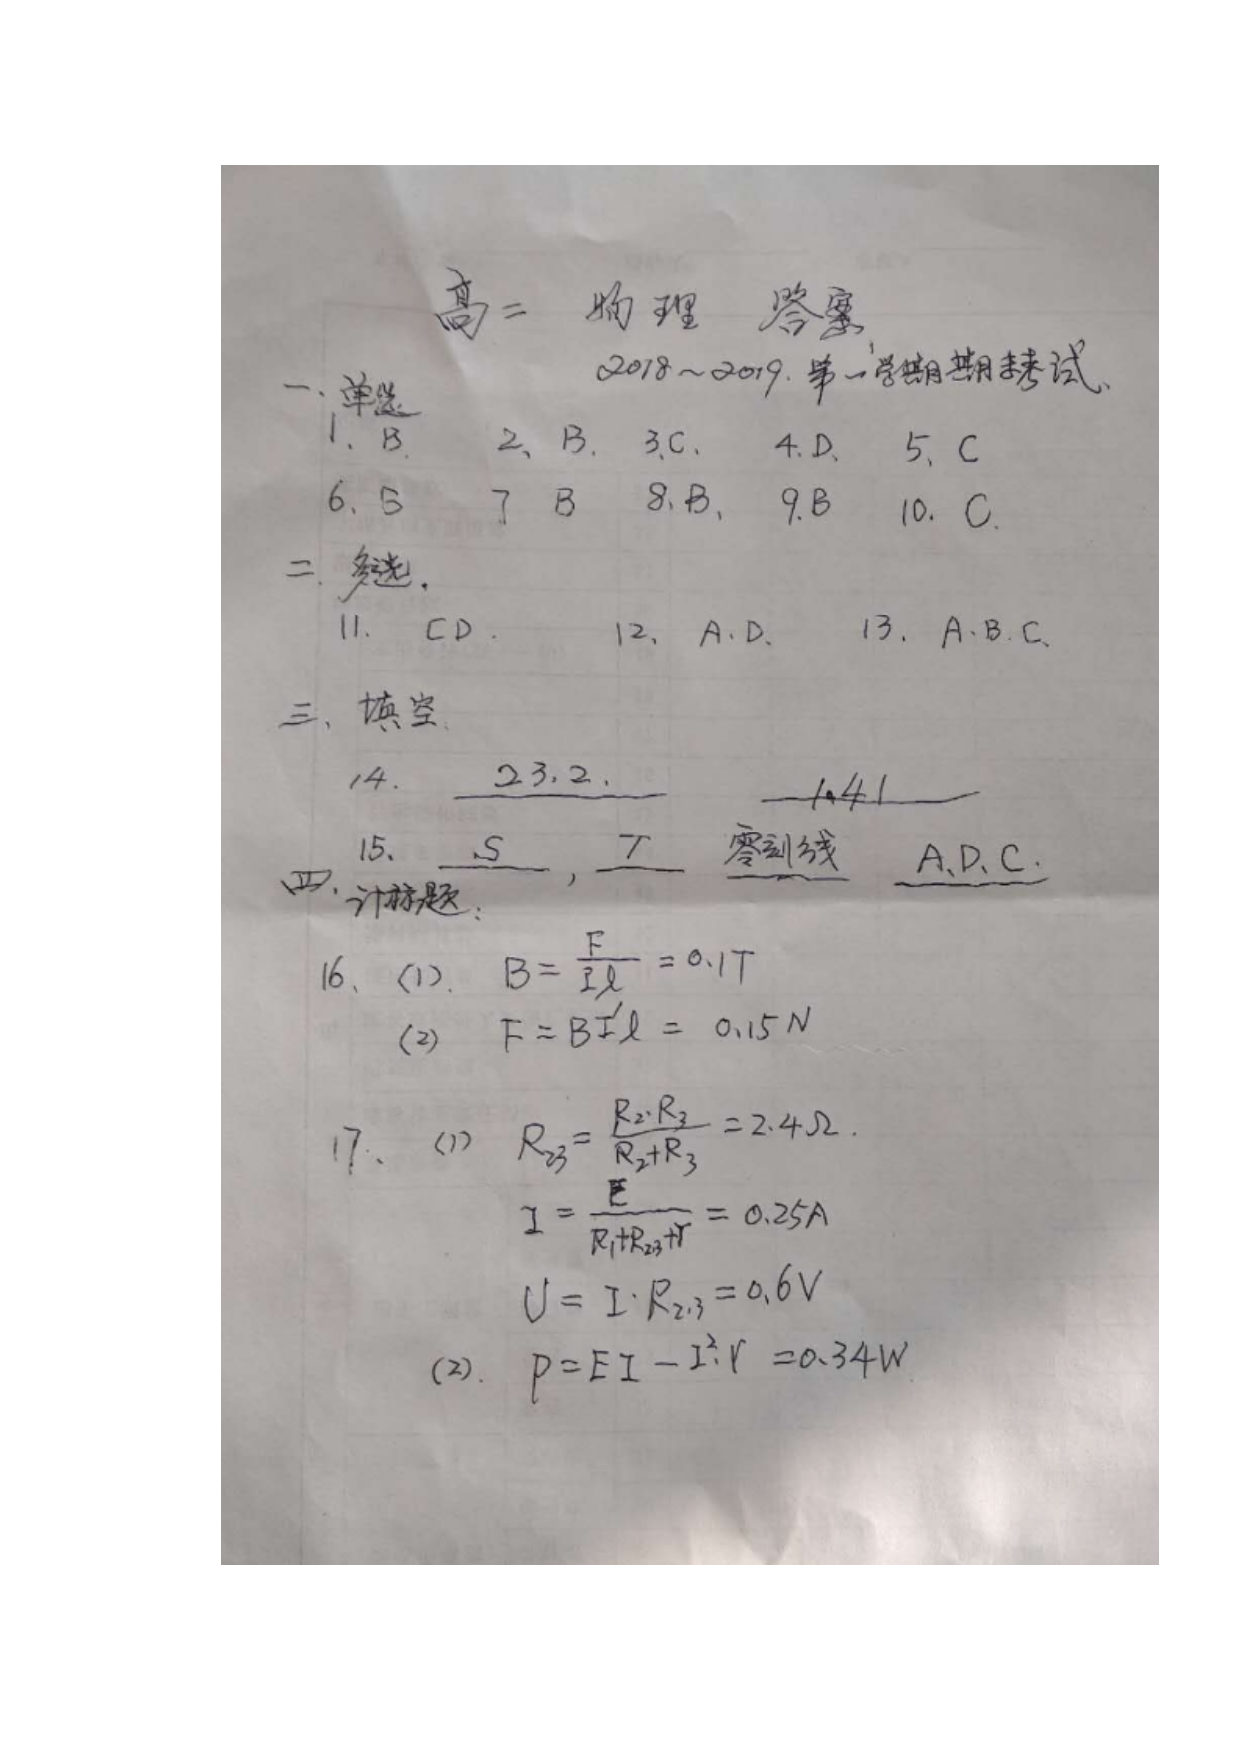 高二 物理 答案
2018～2019.第一学期期末考试、
一.单选
1、B. 2、B. 3、C. 4.D. 5、C
6、B 7 B 8.B、 9.B 10. C.
二.多选.
11. CD. 12、A.D. 13. A.B.C、
三、填空.
14. 23.2. 1.41
15、 S , T 零刻线 A.D.C.
四.计标题:
16、(1). B = F/Il = 0.1T
(2) F = BI'l = 0.15N
17、 (1) R23 = R2·R3/R2+R3 = 2.4Ω.
I = E/R1+R23+r = 0.25A
U = I·R2.3 = 0.6V
(2). P = EI - I²·r = 0.34W